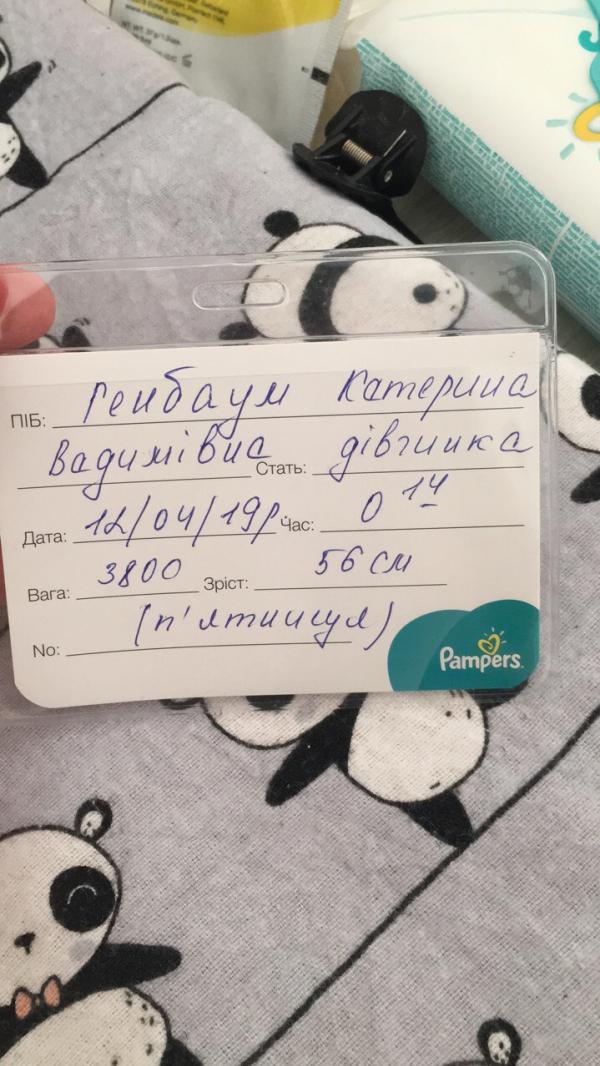 ПІБ: Генбаум Катерина
Вадимівна Стать: дівчинка
Дата: 12/04/19р. Час: 0 14
Вага: 3800 Зріст: 56 см
No: (п'ятниця)
Pampers